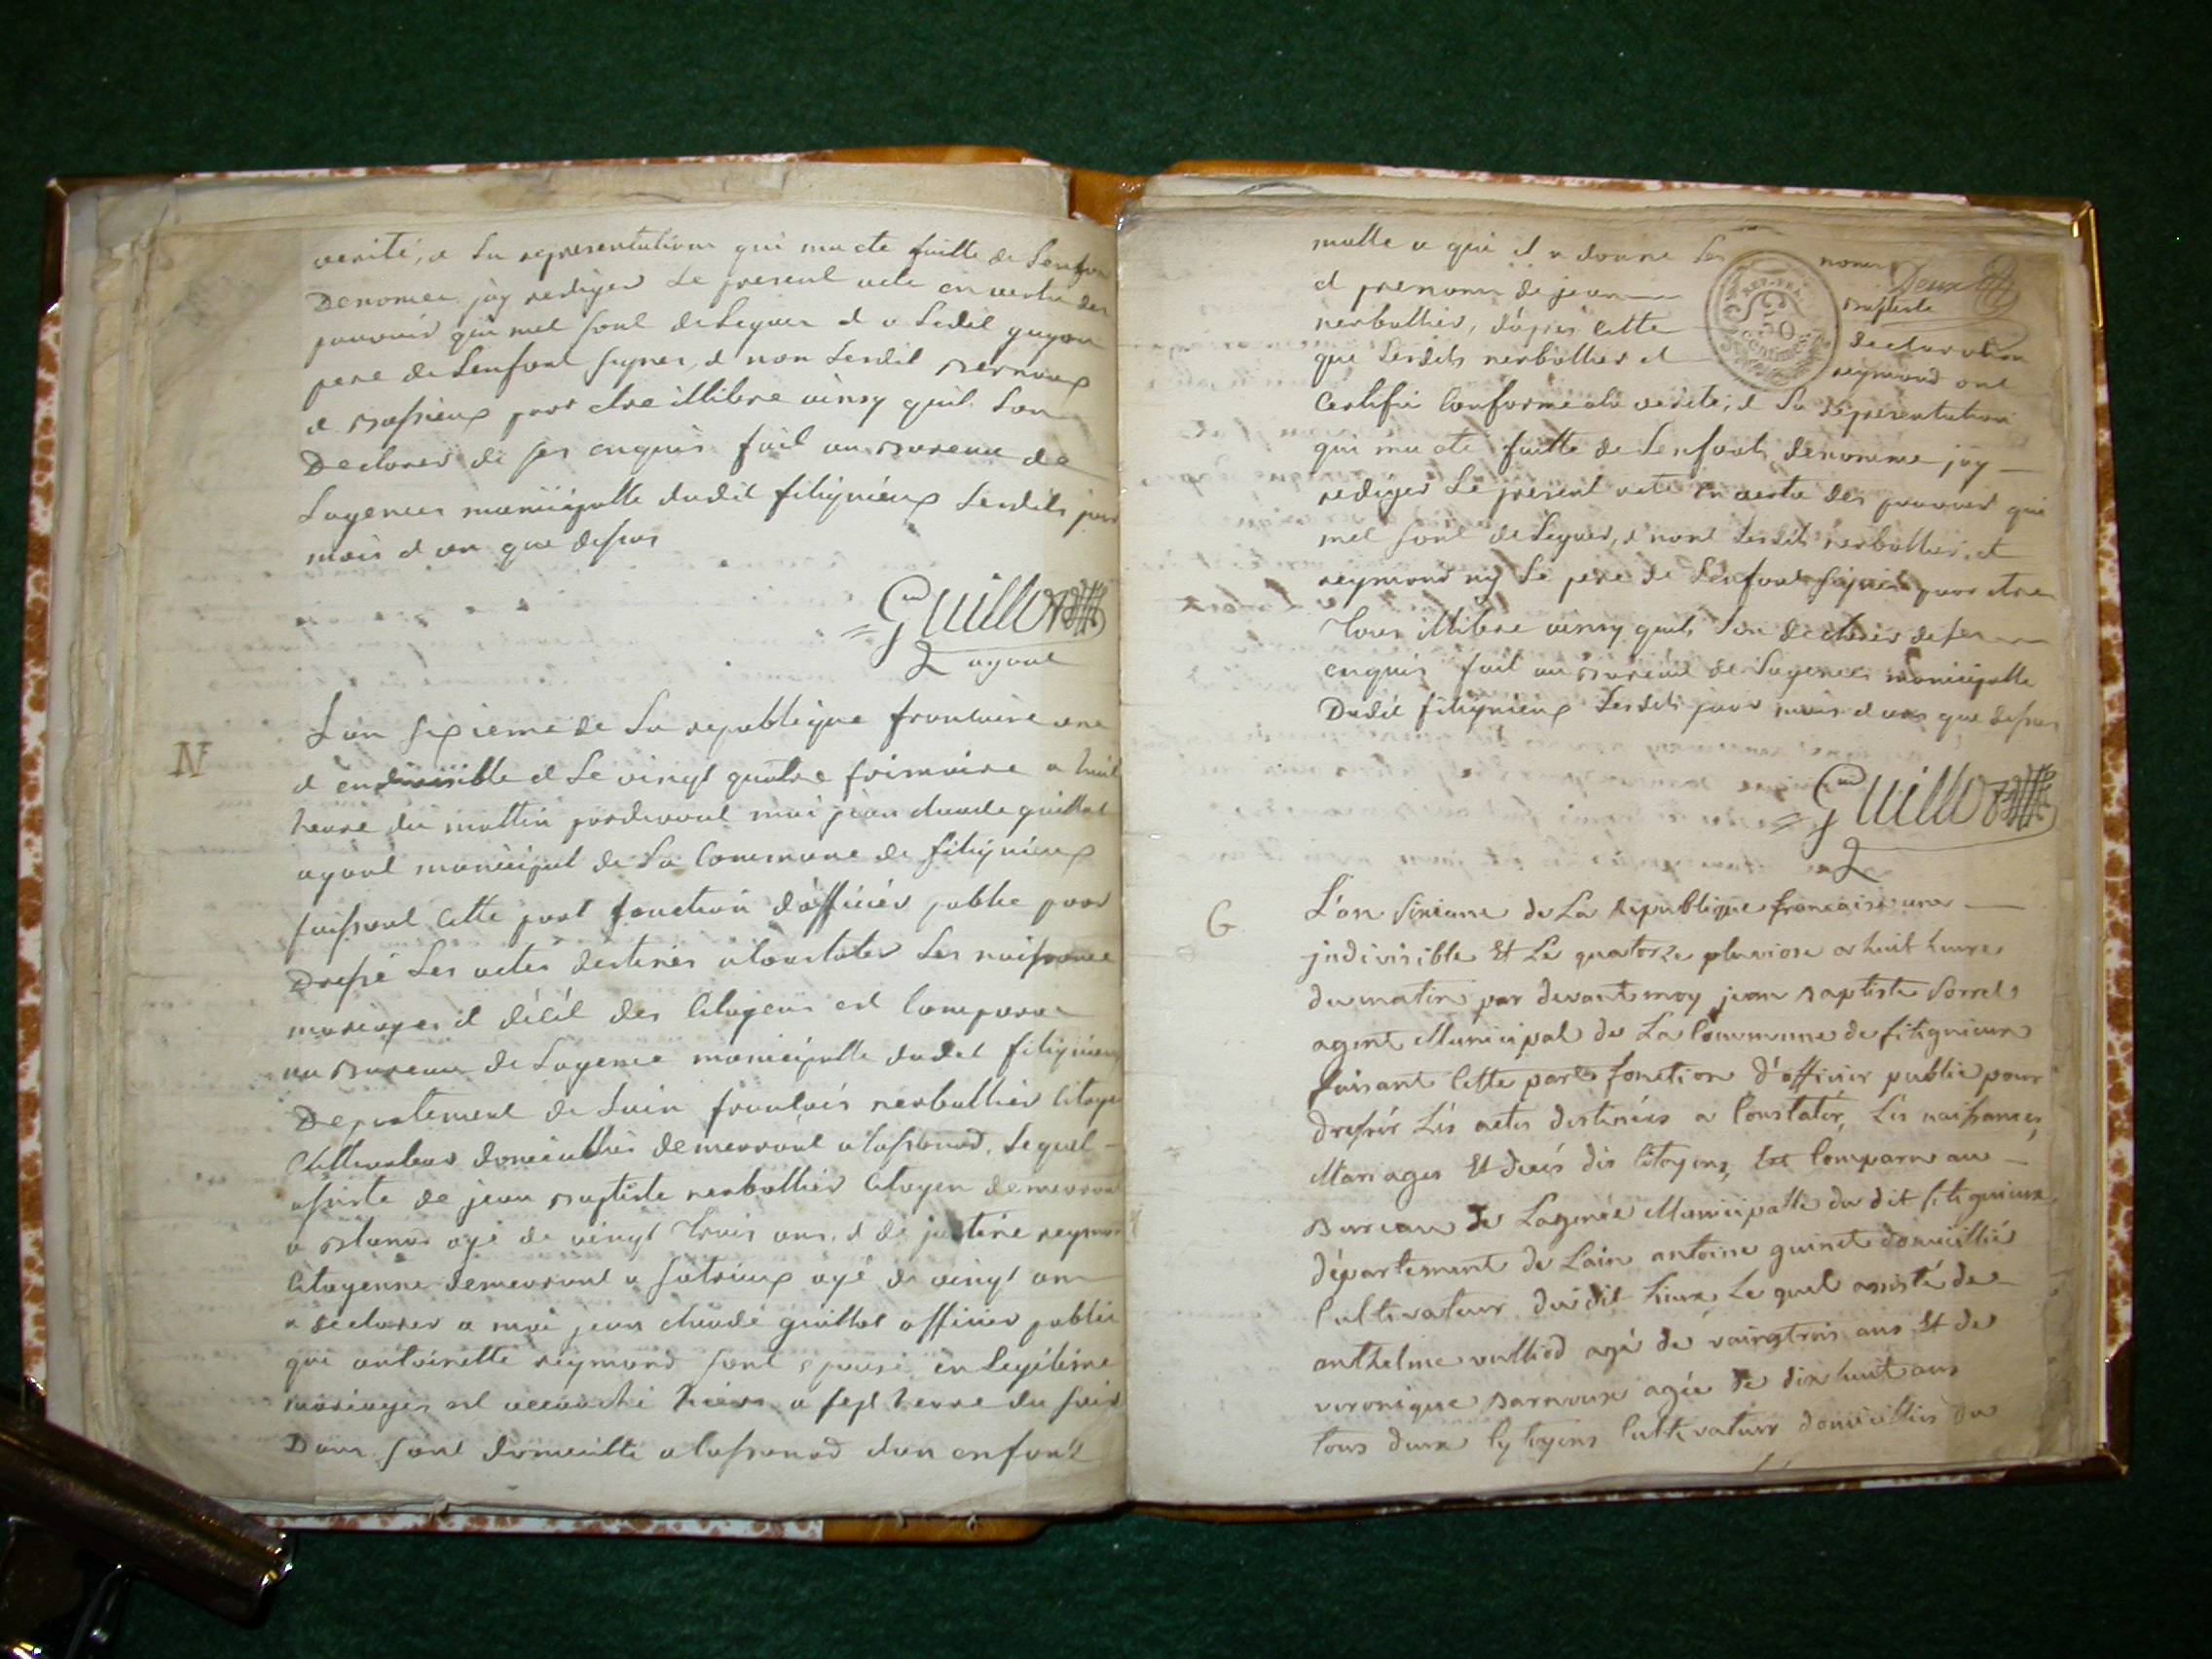 verité, a la representations qui ma ete faitte de Lenfan
Denomer jay rediger Le present acte en vertu des
pouvoir qui mel sont deleguer et a Ledit guyon
pere de Lenfant signer, et non Lesdit Bernoux
et Massieux pour etre illitere ainsy quil son
Declarer de ses enquis fait au Bureau de
Lagences municipalle dudit fitignieux Lesdits jour
mois et an que dessus
Guillot
agant
N
Lan sixieme de La republique francaise une
et endivisible et Le vingt quatre frimaire a huit
heure du mattin pardevant moi jean claude guillot
agant municipal de La Commune de fitignieux
faissant Cette part fonction d'officier public pour
Dressé Les actes destines a Constater Les naissance
mariages et décét des Citoyens est Comparu
au Bureau de Lagence municipalle dudit fitignieux
Departement de Lain francois nerbollier Citoyen
Cultivateur domicilliés demeurant a Lassonod. Lequel
assiste de jean Baptiste nerbollier Citoyen demeurant
a Blanod agé de vingt trois ans. et de justine reymond
Citoyenne demeurant a Sutrieux agé de vingt ans
a declarer a moi jean claude guillot officier public
que antoinette reymond sont epouse en Legitime
mariages est accouché hiers a sept heure du soir
Dans sont domicille a Lassonod dun enfant
malle a qui il a donne Les noms
Deux
et prenoms de jean Baptiste
nerbollier, d'apres Cette declaration
REP. FRA.
50
centimes
que Lesdits nerbollier et reymond ont
Certifié Conforme ala verite, et La representation
qui ma ete faitte de Lenfant denomme jay
rediger Le present acte en vertu des pouvoir qui
mel sont deleguer, et nont Lesdits nerbollier, et
reymond ny Le pere de Lenfant signer pour etre
tous illitere ainsy quils son declarer de ses
enquis fait au Bureau de Lagences municipalle
Dudit fitignieux Lesdits jour mois et an que dessus
Guillot
G
L'an sixieme de La Republique francaise une
indivisible Et Le quatorze pluviose a huit heures
du matin par devant moy jean Baptiste Sorrel
agent Municipal de La Commune de fitignieux
faisant Cette part fonction d'officier public pour
dressér Lés actes destinées a Constatér, Lés naissances,
Mariages Et décés dés Citoyens, Est Comparu au
Bureau de Lagence Municipalle du dit fitignieux,
département de Lain antoine guinet domicillié
Cultivateur du dit Lieux Le quel assisté de
anthelme vulliod agé de vaingtrois ans Et de
veronique Barnoux agée de dix huit ans
tous deux Cytoyens Cultivateurs domicilliés du